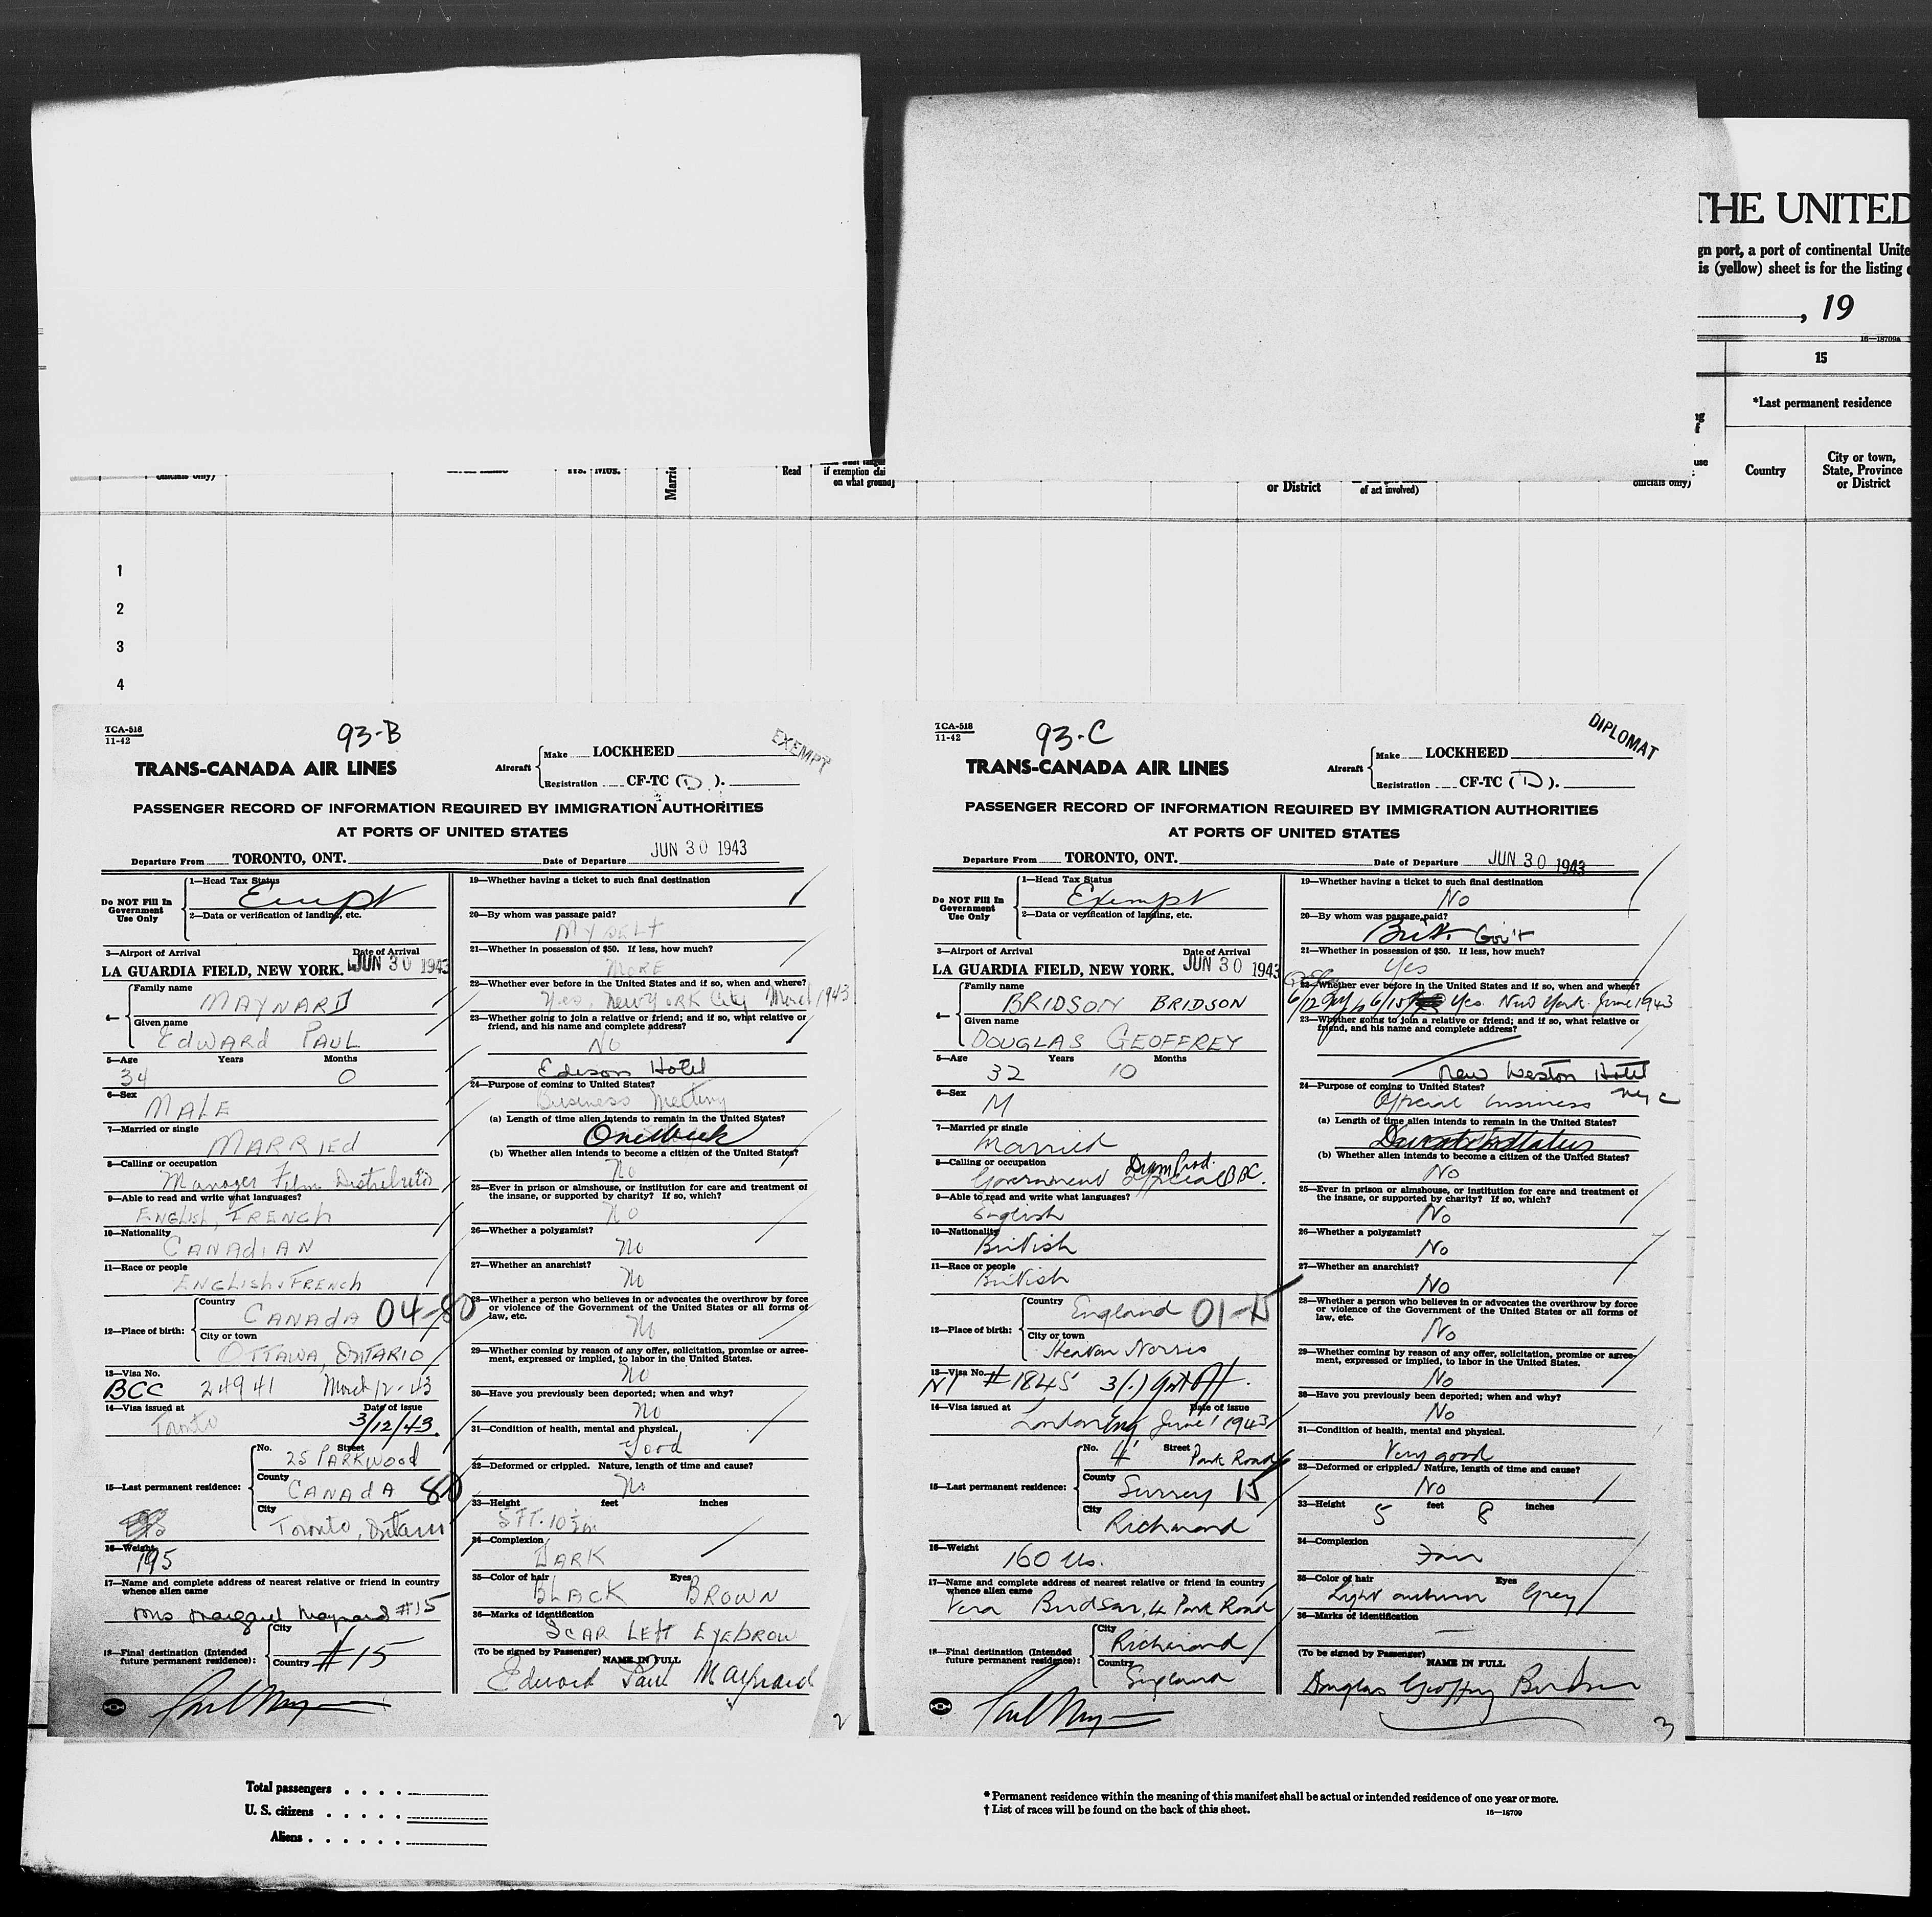 THE UNITED
gn port, a port of continental Unite
is (yellow) sheet is for the listing
, 19
16—18709a
15
*Last permanent residence
Country
City or town,
State, Province
or District
officials only)
Yrs. Mos.
Marrie
Read
if exemption clai
on what ground)
or District
of act involved)
officials only)
1
2
3
4
TCA-518
11-42
93-B
EXEMPT
TRANS-CANADA AIR LINES
Aircraft
Make LOCKHEED
Registration CF-TC (D).
PASSENGER RECORD OF INFORMATION REQUIRED BY IMMIGRATION AUTHORITIES
AT PORTS OF UNITED STATES
Departure From TORONTO, ONT. Date of Departure JUN 30 1943
Do NOT Fill In
Government
Use Only
1—Head Tax Status
Exempt
2—Data or verification of landing, etc.
3—Airport of Arrival Date of Arrival
LA GUARDIA FIELD, NEW YORK. JUN 30 1943
4— Family name
MAYNARD
Given name
EDWARD PAUL
5—Age Years Months
34 0
6—Sex
MALE
7—Married or single
MARRIED
8—Calling or occupation
Manager Film Distributor
9—Able to read and write what languages?
ENGLISH, FRENCH
10—Nationality
CANADIAN
11—Race or people
ENGLISH & FRENCH
12—Place of birth:
Country
CANADA 04-80
City or town
OTTAWA, ONTARIO
13—Visa No.
BCC 24941 March 12-43
14—Visa issued at Date of issue
Toronto 3/12/43.
15—Last permanent residence:
No. Street
25 PARKWOOD
County
CANADA 80
City
Toronto, Ontario
16—Weight
195
17—Name and complete address of nearest relative or friend in country
whence alien came
Mrs Margaret Maynard #15
18—Final destination (Intended
future permanent residence):
City
Country #15
19—Whether having a ticket to such final destination
20—By whom was passage paid?
MYSELF
21—Whether in possession of $50. If less, how much?
MORE
22—Whether ever before in the United States and if so, when and where?
Yes, New York City March 1943
23—Whether going to join a relative or friend; and if so, what relative or
friend, and his name and complete address?
No
Edison Hotel
24—Purpose of coming to United States?
Business Meeting
(a) Length of time alien intends to remain in the United States?
One Week
(b) Whether alien intends to become a citizen of the United States?
No
25—Ever in prison or almshouse, or institution for care and treatment of
the insane, or supported by charity? If so, which?
No
26—Whether a polygamist?
No
27—Whether an anarchist?
No
28—Whether a person who believes in or advocates the overthrow by force
or violence of the Government of the United States or all forms of
law, etc.
No
29—Whether coming by reason of any offer, solicitation, promise or agree-
ment, expressed or implied, to labor in the United States.
No
30—Have you previously been deported; when and why?
No
31—Condition of health, mental and physical.
Good
32—Deformed or crippled. Nature, length of time and cause?
No
33—Height feet inches
5 FT. 10½ in
34—Complexion
DARK
35—Color of hair Eyes
BLACK BROWN
36—Marks of identification
SCAR LEFT EYEBROW
(To be signed by Passenger)
NAME IN FULL
Edward Paul Maynard
2
TCA-518
11-42
93-C
DIPLOMAT
TRANS-CANADA AIR LINES
Aircraft
Make LOCKHEED
Registration CF-TC (D).
PASSENGER RECORD OF INFORMATION REQUIRED BY IMMIGRATION AUTHORITIES
AT PORTS OF UNITED STATES
Departure From TORONTO, ONT. Date of Departure JUN 30 1943
Do NOT Fill In
Government
Use Only
1—Head Tax Status
Exempt
2—Data or verification of landing, etc.
3—Airport of Arrival Date of Arrival
LA GUARDIA FIELD, NEW YORK. JUN 30 1943
4— Family name
BRIDSON BRIDSON
Given name
DOUGLAS GEOFFREY
5—Age Years Months
32 10
6—Sex
M
7—Married or single
Married
8—Calling or occupation
Government Official BBC.
9—Able to read and write what languages?
English
10—Nationality
British
11—Race or people
British
12—Place of birth:
Country
England 01-15
City or town
Heaton Norris
13—Visa No.
#1845 3(1) Govt Off.
14—Visa issued at Date of issue
London Eng June 1 1943
15—Last permanent residence:
No. Street
4 Park Road
County
Surrey 15
City
Richmond
16—Weight
160 lbs.
17—Name and complete address of nearest relative or friend in country
whence alien came
Vera Bridson, 4 Park Road
18—Final destination (Intended
future permanent residence):
City
Richmond
Country
England
19—Whether having a ticket to such final destination
No
20—By whom was passage paid?
Brit. Gov't
21—Whether in possession of $50. If less, how much?
Yes
22—Whether ever before in the United States and if so, when and where?
Yes New York June 1943
23—Whether going to join a relative or friend; and if so, what relative or
friend, and his name and complete address?
New Weston Hotel
NYC
24—Purpose of coming to United States?
Official business
(a) Length of time alien intends to remain in the United States?
(b) Whether alien intends to become a citizen of the United States?
No
25—Ever in prison or almshouse, or institution for care and treatment of
the insane, or supported by charity? If so, which?
No
26—Whether a polygamist?
No
27—Whether an anarchist?
No
28—Whether a person who believes in or advocates the overthrow by force
or violence of the Government of the United States or all forms of
law, etc.
No
29—Whether coming by reason of any offer, solicitation, promise or agree-
ment, expressed or implied, to labor in the United States.
No
30—Have you previously been deported; when and why?
No
31—Condition of health, mental and physical.
Very good
32—Deformed or crippled. Nature, length of time and cause?
No
33—Height feet inches
5 8
34—Complexion
Fair
35—Color of hair Eyes
Light auburn Grey
36—Marks of identification
—
(To be signed by Passenger)
NAME IN FULL
Douglas Geoffrey Bridson
3
Total passengers
U. S. citizens
Aliens
* Permanent residence within the meaning of this manifest shall be actual or intended residence of one year or more.
† List of races will be found on the back of this sheet.
16—18709